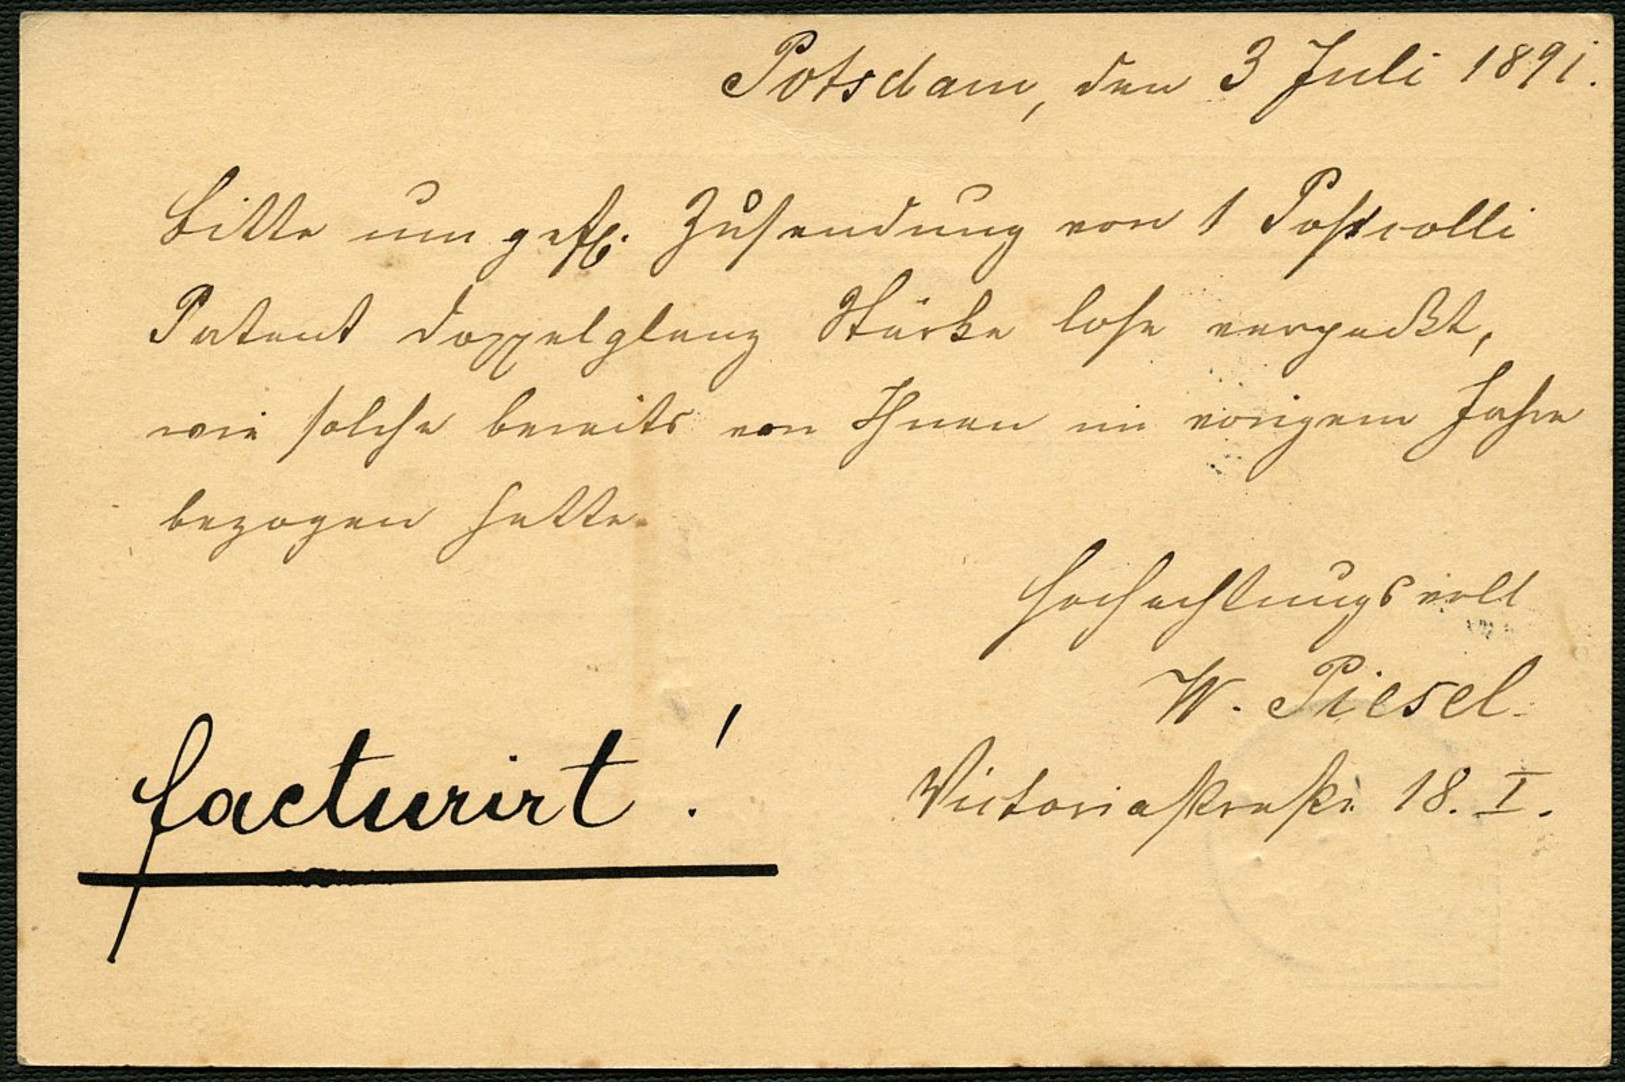 Potsdam, den 3 Juli 1891.
Bitte um gefl. Zusendung von 1 Postcolli
Patent Doppelglanz Stärke lose verpackt,
wie solche bereits von Ihnen im vorigem Jahre
bezogen hatte.
Hochachtungsvoll
W. Piesel.
Victoriastraße 18. I.
facturirt!